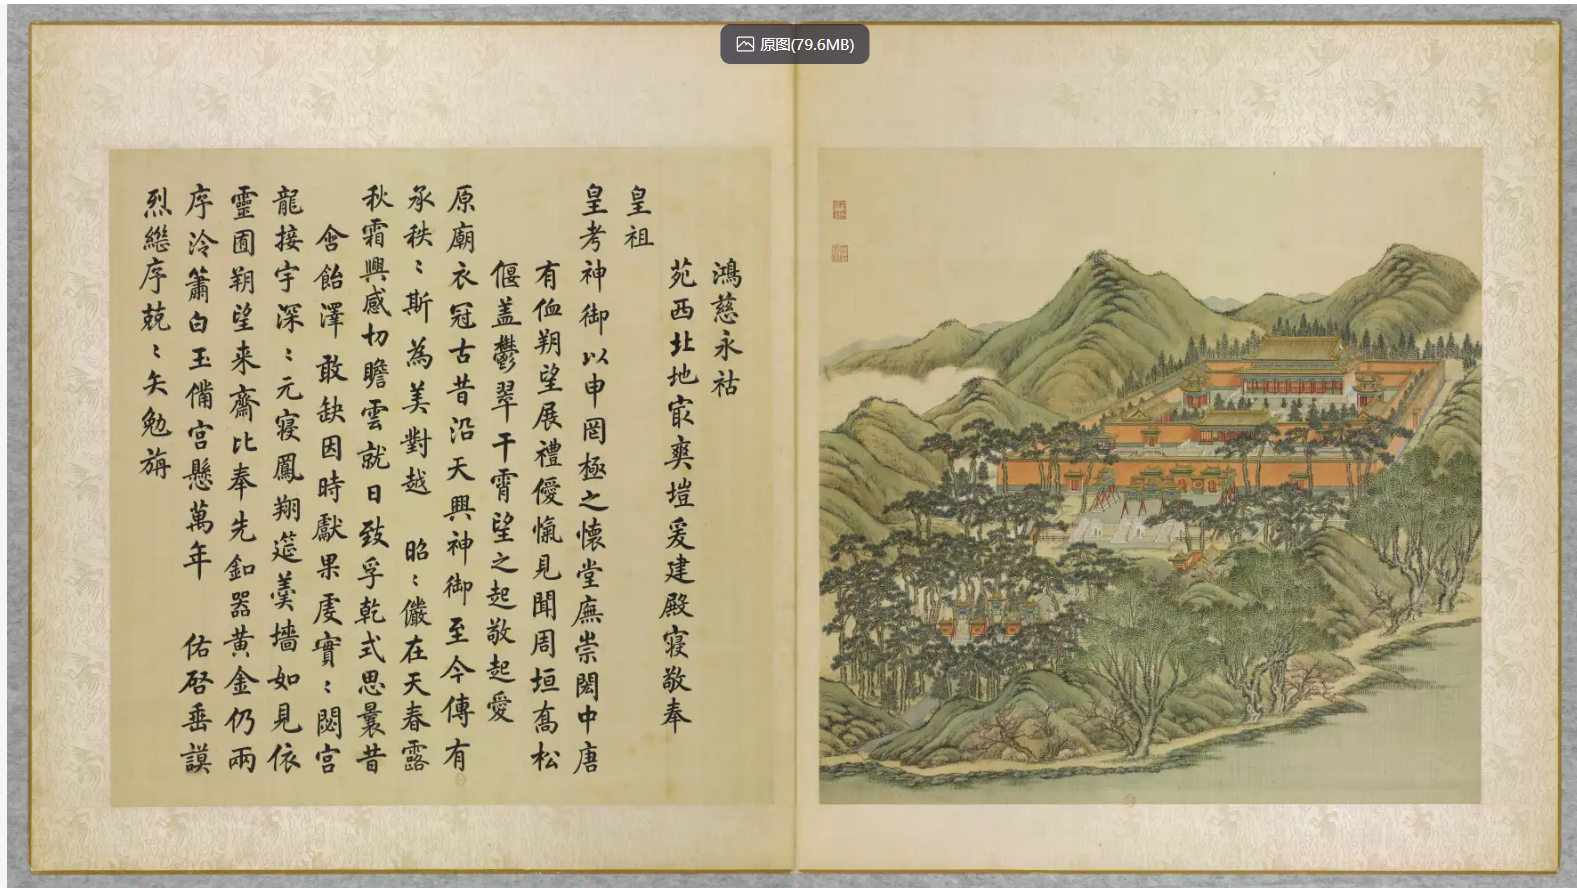 原图(79.6MB)
鴻慈永祜
苑西北地寂爽塏爰建殿寝敬奉
皇祖
皇考神御以申罔極之懷堂廡崇閎中唐
有侐朔望展禮優愾見聞周垣喬松
偃盖鬱翠干霄望之起敬起愛
原廟衣冠古昔沿天興神御至今傳有
承秩〻斯為美對越 昭〻儼在天春露
秋霜興感切瞻雲就日致孚乾式思曩昔
含飴澤敢缺因時獻果虔實〻閟宮
龍接宇深〻元寝鳳翔筵羹墻如見依
靈囿朔望来齋比奉先釦器黄金仍兩
序泠簫白玉備宮懸萬年 佑啓垂謨
烈繼序兢〻矢勉旃